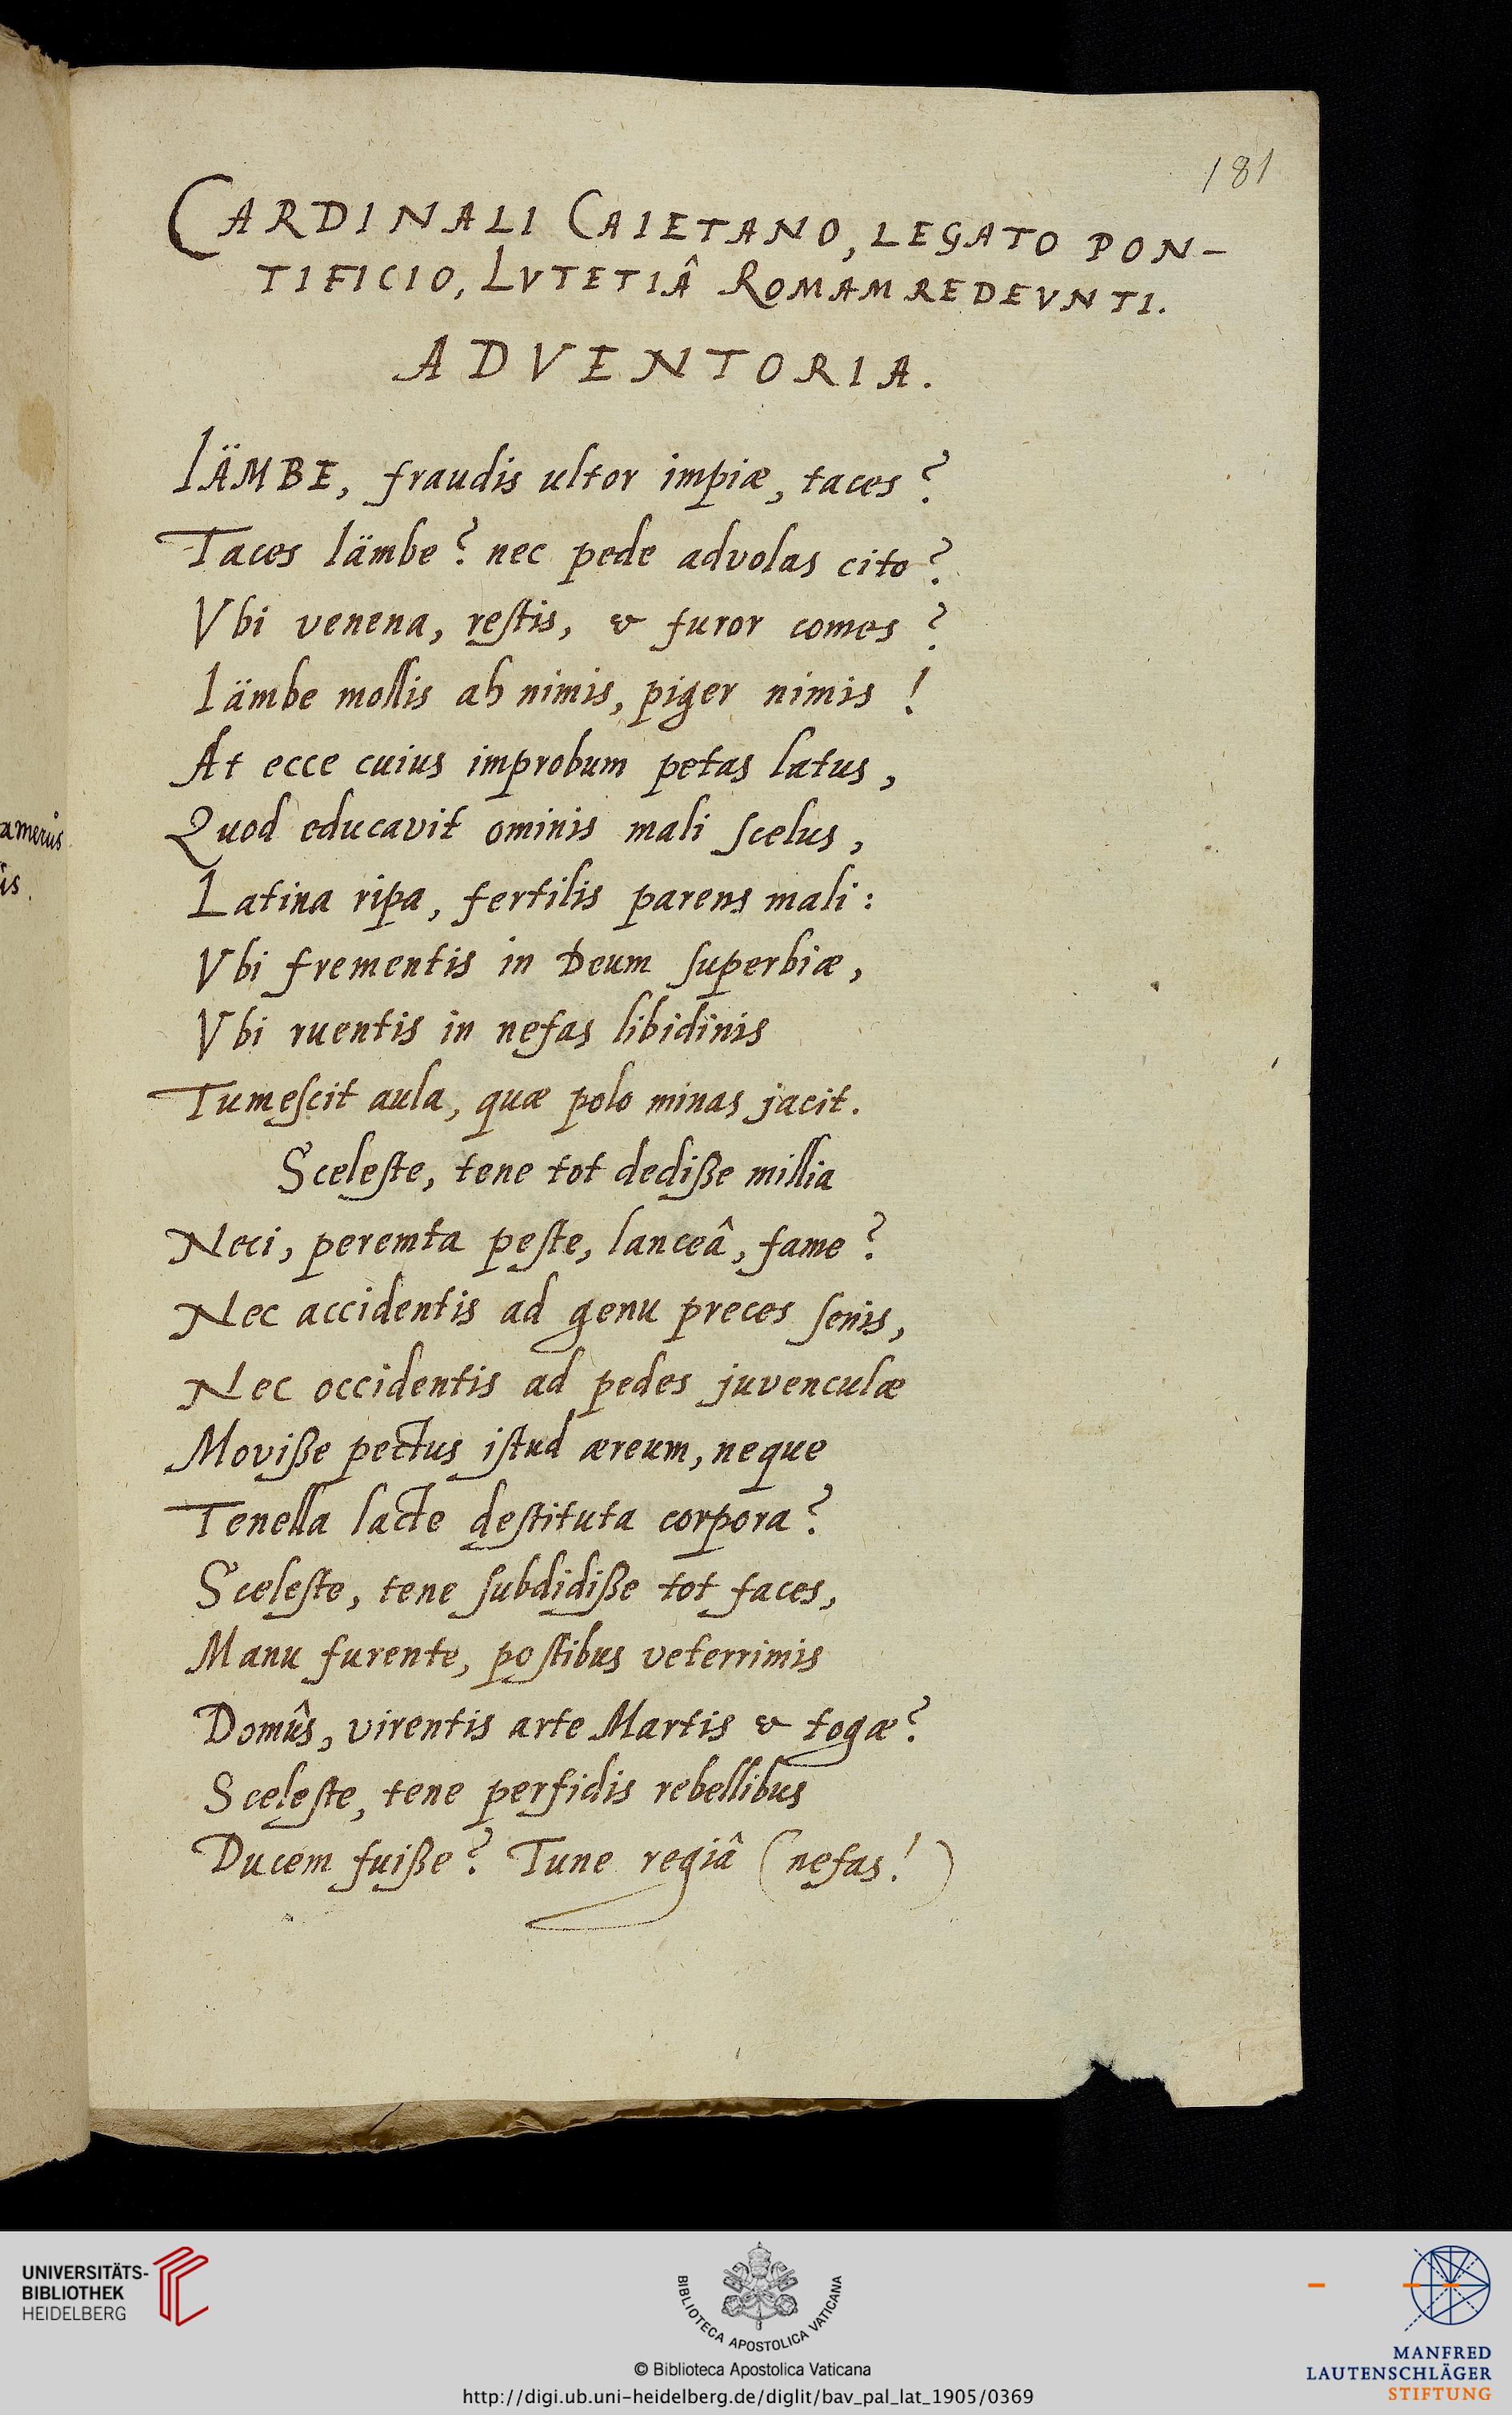 181
CARDINALI CAIETANO, LEGATO PON-
TIFICIO, LVTETIÂ ROMAM REDEVNTI.
ADVENTORIA.
IÄMBE, fraudis ultor impiæ, taces?
Taces Iämbe? nec pede advolas cito?
Vbi venena, reſtis, & furor comes?
Iämbe mollis ah nimis, piger nimis!
At ecce cuius improbum petas latus,
Quod educavit ominis mali ſcelus,
amerus
is.
Latina ripa, fertilis parens mali:
Vbi frementis in Deum ſuperbiæ,
Vbi ruentis in nefas libidinis
Tumeſcit aula, quæ polo minas jacit.
Sceleſte, tene tot dediße millia
Neci, peremta peſte, lanceâ, fame?
Nec accidentis ad genu preces ſenis,
Nec occidentis ad pedes juvenculæ
Moviße pectus iſtud æreum, neque
Tenella lacte deſtituta corpora?
Sceleſte, tene ſubdidiße tot faces,
Manu furente, poſtibus veterrimis
Domûs, virentis arte Martis & togæ?
Sceleſte, tene perfidis rebellibus
Ducem fuiße? Tune regiâ (nefas!)
UNIVERSITÄTS-
BIBLIOTHEK
HEIDELBERG
BIBLIOTECA APOSTOLICA VATICANA
© Biblioteca Apostolica Vaticana
http://digi.ub.uni-heidelberg.de/diglit/bav_pal_lat_1905/0369
MANFRED
LAUTENSCHLÄGER
STIFTUNG